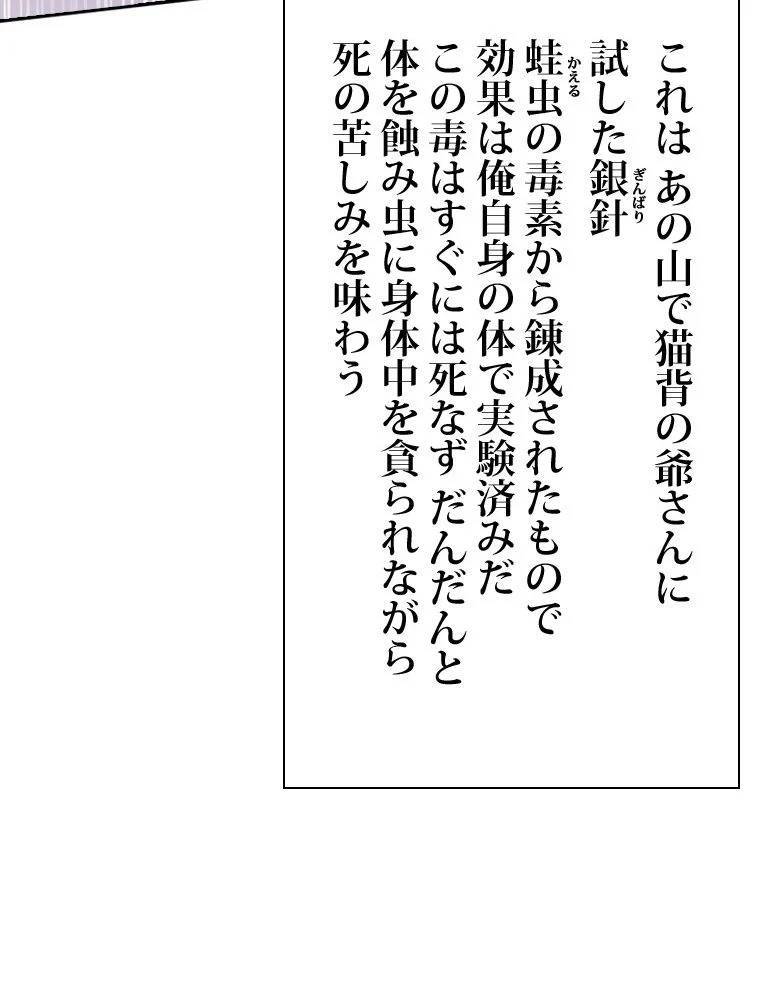 これは あの山で猫背の爺さんに
試した銀針
ぎんばり
蛙虫の毒素から錬成されたもので
かえる
効果は俺自身の体で実験済みだ
この毒はすぐには死なず だんだんと
体を蝕み虫に身体中を貪られながら
死の苦しみを味わう